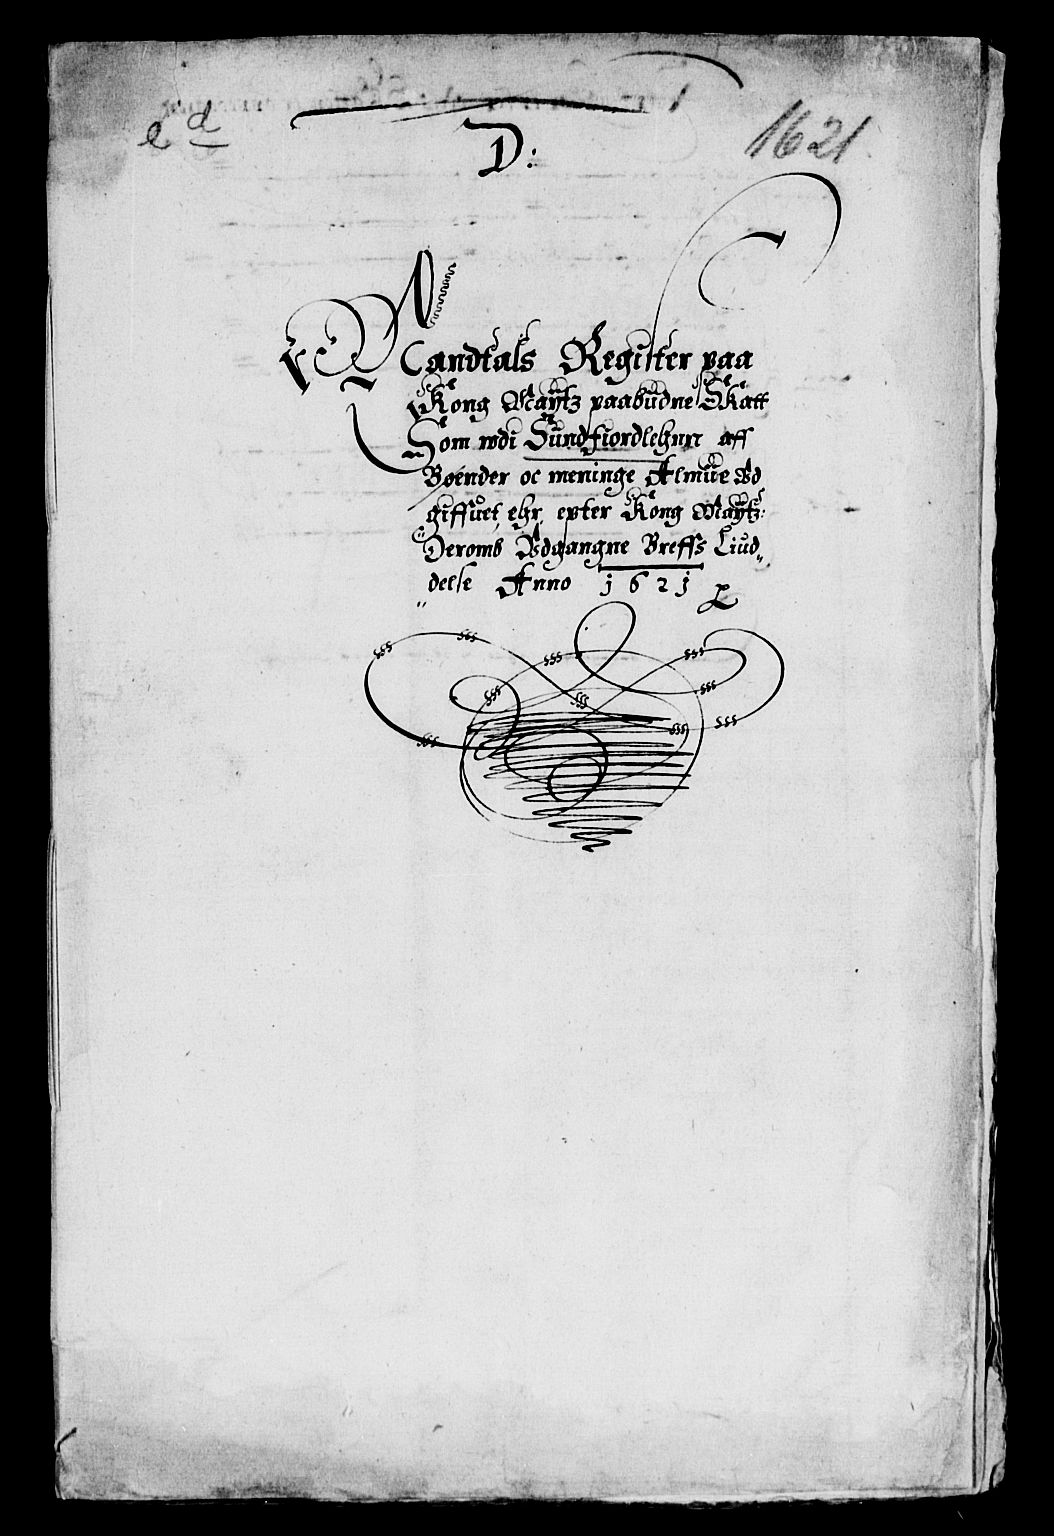 1621
D:
Mandtals Register paa
Kong Maÿtz paabudne Skatt
Som wdi Sundfiordlehnn aff
Bøender oc meninge Almue Vd
giffuet ehr, epter Kong Maÿtz:
Deromb Vdgangne Breffs Liud„
delse Anno 1621